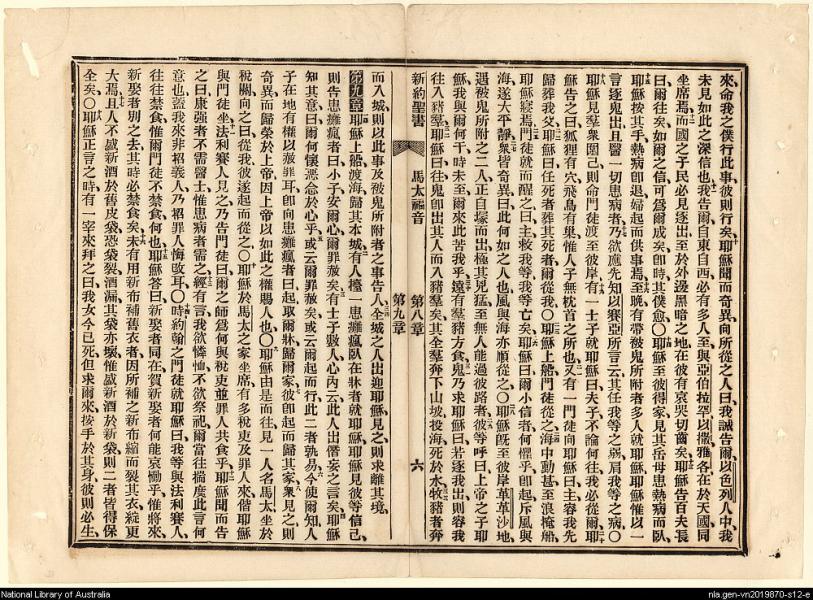 來命我之僕行此事彼則行矣耶穌聞而奇異向所從之人曰我誠告爾以色列人中我
未見如此之深信也我告爾自東自西必有多人至與亞伯拉罕以撒雅各在於天國同
坐席焉而國之子民必見逐出至於外邊黑暗之地在彼有哀哭切齒矣耶穌告百夫長
曰爾往矣如爾之信可為爾成矣卽時其僕愈〇耶穌至彼得家見其岳母患熱病而臥
耶穌按其手熱病卽退婦起而供事焉至晚有帶被鬼所附者多人就耶穌耶穌惟以一
言逐鬼出且醫一切患病者乃欲應先知以賽亞所言云其任我等之弱肩我等之病〇
耶穌見羣衆圍己則命門徒渡至彼岸有一士子就耶穌曰夫子不論何往我必從爾耶
穌告之曰狐狸有穴飛鳥有巢惟人子無枕首之所也又有一門徒向耶穌曰主容我先
歸葬我父耶穌曰任死者葬其死者爾從我〇耶穌上船門徒從之海中動甚至浪掩船
耶穌寢焉門徒就而醒之曰主救我等我等亡矣耶穌曰爾小信者何懼乎卽起斥風與
海遂大平靜衆皆奇異曰此何如之人也風與海亦順從之〇耶穌旣至彼岸革革沙地
遇被鬼所附之二人正自塚而出極其兇猛至無人能過彼路者彼等呼曰上帝之子耶
穌我與爾何干時未至爾來此苦我乎遠有羣豬方食鬼乃求耶穌曰若逐我出則容我
往入豬羣耶穌曰往鬼卽出其人而入豬羣矣其全羣奔下山坡投海死於水牧豬者奔
新約聖書
馬太福音
第八章
第九章
六
而入城則以此事及被鬼所附者之事告人全城之人出迎耶穌見之則求離其境
第九章耶穌上船渡海歸其本城有人擡一患癱瘋臥在牀者就耶穌耶穌見彼等信己
則告患癱瘋者曰小子安爾心爾罪赦矣有士子數人心內云此人出僭妄之言矣耶穌
知其意曰爾何懷惡念於心乎或云爾罪赦矣或云爾起而行此二者孰易今使爾知人
子在地有權以赦罪耳卽向患癱瘋者曰起取爾牀歸爾家彼卽起而歸其家衆見之則
奇異而歸榮於上帝因上帝以如此之權賜人也〇耶穌由是而往見一人名馬太坐於
稅關向之曰從我彼遂起而從之〇耶穌於馬太之家坐席有多稅吏及罪人來偕耶穌
與門徒坐法利賽人見之乃告門徒曰爾之師爲何與稅吏並罪人共食乎耶穌聞而告
之曰康强者不需醫士惟患病者需之經有言我欲憐恤不欲祭祀爾當往揣度此言何
意也蓋我來非招義人乃招罪人悔改耳〇時約翰之門徒就耶穌曰我等與法利賽人
往往禁食惟爾門徒不禁食何也耶穌答曰新娶者同在賀新娶者何能哀慟乎惟將來
新娶者別之去其時必禁食矣未有用新布補舊衣者因所補之新布縮而裂其衣綻更
大焉且人不盛新酒於舊皮袋恐袋裂酒漏其袋亦壞惟盛新酒於新袋則二者皆得保
全矣〇耶穌正言之時有一宰來拜之曰我女今已死但求爾來按手於其身彼則必生
National Library of Australia
nla.gen-vn2019870-s12-e